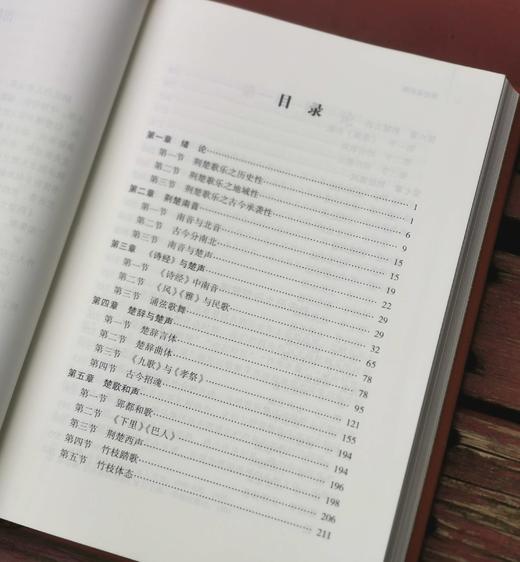 目 录
第一章 绪 论 1
第一节 荆楚歌乐之历史性 1
第二节 荆楚歌乐之地域性 6
第三节 荆楚歌乐之古今承袭性 9
第二章 荆楚南音 15
第一节 南音与北音 15
第二节 古今分南北 19
第三节 南音与楚声 22
第三章 《诗经》与楚声 29
第一节 《诗经》中南音 29
第二节 《风》《雅》与民歌 32
第三节 诵弦歌舞 65
第四章 楚辞与楚声 78
第一节 楚辞言体 78
第二节 楚辞曲体 95
第三节 《九歌》与《孝祭》 121
第四节 古今招魂 155
第五章 楚歌和声 194
第一节 郢都和歌 194
第二节 《下里》《巴人》 196
第三节 荆楚西声 198
第四节 竹枝踏歌 206
第五节 竹枝体态 211